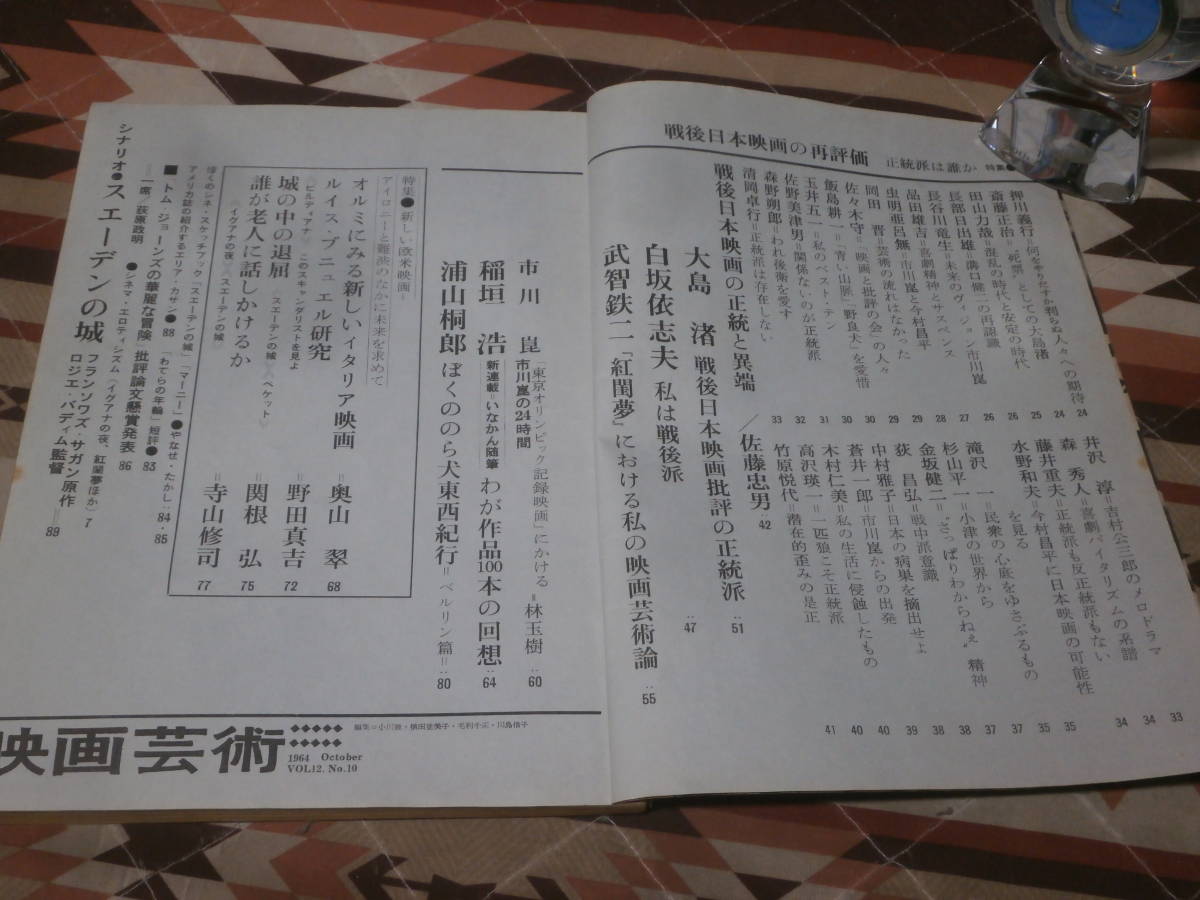 戦後日本映画の再評価 正統派は誰か 特集●
押川義行＝何をやりだすか判らぬ人々への期待 24
斎藤正治＝“死票”としての大島渚 24
田山力哉＝混乱の時代と安定の時代 25
長部日出雄＝溝口健二の再認識 26
長谷川竜生＝未来のヴィジョン市川崑 26
品田雄吉＝喜劇精神とサスペンス 27
虫明亜呂無＝市川崑と今村昌平 28
岡田 晋＝芸術の流れはなかった 29
佐々木守＝「映画と批評の会」の人々 29
飯島耕一＝「青い山脈」「野良犬」を愛惜 30
玉井五一＝私のベスト・テン 30
佐野美津男＝関係ないのが正統派 31
森野朔郎＝われ後衛を愛す 32
清岡卓行＝正統派は存在しない 33
井沢 淳＝吉村公三郎のメロドラマ 33
森 秀人＝喜劇バイタリズムの系譜 34
藤井重夫＝正統派も反正統派もない 34
水野和夫＝今村昌平に日本映画の可能性を見る 35
滝沢 一＝民衆の心底をゆさぶるもの 35
杉山平一＝小津の世界から 37
金坂健二＝“さっぱりわからねぇ”精神 37
荻 昌弘＝戦中派意識 38
中村雅子＝日本の病巣を摘出せよ 38
蒼井一郎＝市川崑からの出発 39
木村仁美＝私の生活に侵蝕したもの 40
高沢瑛一＝一匹狼こそ正統派 40
竹原悦代＝潜在的歪みの是正 41
戦後日本映画の正統と異端／佐藤忠男‥42
大島 渚 戦後日本映画批評の正統派‥51
白坂依志夫 私は戦後派 ‥47
武智鉄二「紅閨夢」における私の映画芸術論‥55
市川 崑 「東京オリンピック記録映画」にかける＝林玉樹‥60
市川崑の24時間
稲垣 浩 新連載＝いなかん随筆 わが作品100本の回想‥64
浦山桐郎 ぼくののら犬東西紀行＝ベルリン篇＝‥80
特集●新しい欧米映画＝
アイロニーと難渋のなかに未来を求めて
オルミにみる新しいイタリア映画＝奥山 翠 68
ルイス・ブニュエル研究＝野田真吉 72
《ビルディアナ》このスキャンダリストを見よ
城の中の退屈＝関根 弘 75
《スエーデンの城》《ベケット》
誰が老人に話しかけるか＝寺山修司 77
《イグアナの夜》《スエーデンの城》
ぼくのシネ・スケッチブック「スエーデンの城」「マーニー」●やなせ・たかし‥84・85
アメリカ誌の紹介するエリア・カザン● 88 「わてらの年輪」短評● 83
■トム・ジョーンズの華麗な冒険 批評論文懸賞発表 86
＝一席／荻原政明 ●シネマ・エロティシズム《イグアナの夜、紅閨夢ほか》7
シナリオ●スエーデンの城 フランソワズ・サガン原作＝89
ロジエ・バディム監督
映画芸術
1964 October
VOL12. No.10
編集＝小川徹・横田登美子・毛利千正・川島信子